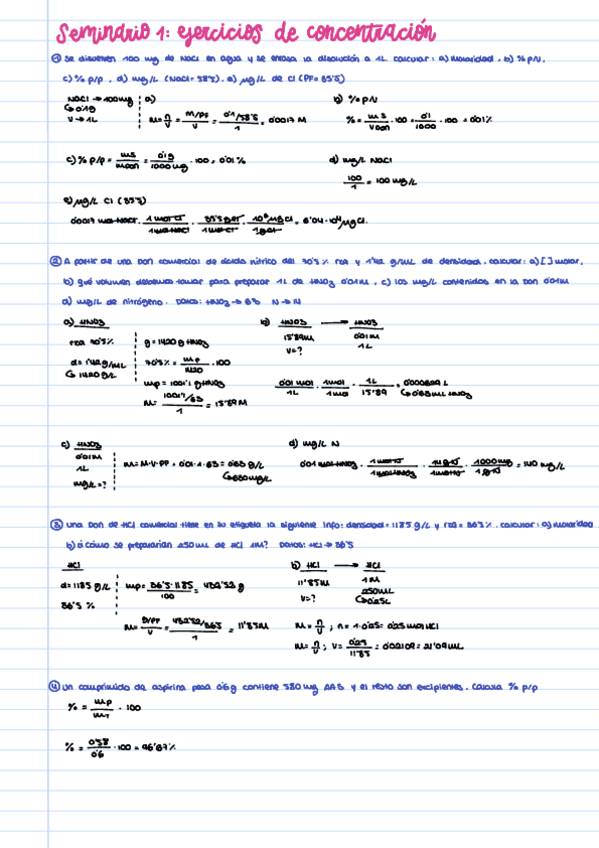 Seminario 1: ejercicios de concentración
① Se disuelven 100 mg de NaCl en agua y se enrasa la disolución a 1L. Calcular: a) Molaridad, b) % P/V,
c) % p/p, d) mg/L (NaCl= 58'5). e) µg/L de Cl (PF= 35'5)
NaCl → 100mg a) b) % P/V
↳ 0'1g
V → 1L M= n/V = m/PF / V = 0'1/58'5 / 1 = 0'0017 M % = ms/Vdon · 100 = 0'1/1000 · 100 = 0'01%
c) % p/p = ms/mdon = 0'1g/1000mg · 100 = 0'01% d) mg/L NaCl
100/1 = 100 mg/L
e) µg/L Cl (35'5)
0'0017 mol NaCl · 1 mol Cl/1 mol NaCl · 35'5 g Cl/1 mol Cl · 10⁶ µg Cl/1 g Cl = 6'04·10⁴ µg Cl.
② A partir de una Don comercial de ácido nítrico del 70'5% rza y 1'42 g/mL de densidad. calcular: a) [ ] molar,
b) qué volumen debemos tomar para preparar 1L de HNO3 0'01M, c) los mg/L contenidos en la Don 0'01M
d) mg/L de nitrógeno. Datos: HNO3 → 63 N → 14
a) HNO3 b) HNO3 → HNO3
rza 70'5% g = 1420 g HNO3 15'89M 0'01M
V=? 1L
d= 1'42 g/mL 70'5% = mp/1420 · 100
↳ 1420 g/L
mp = 1001'1 g HNO3 0'01 mol/1L · 1mol/1mol · 1L/15'89 = 0'000629 L
↳ 0'63 mL HNO3
M= 1001'1/63 / 1 = 15'89 M
c) HNO3 d) mg/L N
0'01M
1L M= M·V·PF = 0'01·1·63 = 0'63 g/L 0'01 mol HNO3 · 1 mol N/1 mol HNO3 · 14g N/1 mol N · 1000mg/1g N = 140 mg/L
↳ 630 mg/L
mg/L=?
③ Una Don de HCl comercial tiene en su etiqueta la siguiente info: densidad= 1185 g/L y rza= 36'5%. calcular: a) Molaridad
b) ¿Cómo se prepararían 250mL de HCl 1M? Datos: HCl → 36'5
HCl b) HCl → HCl
d= 1185 g/L mp= 36'5·1185/100 = 432'52 g 11'85M 1M
250mL
36'5 % V=? ↳ 0'25L
M= g/PF / V = 432'52/36'5 / 1 = 11'85M M= n/V ; n= 1·0'25= 0'25 mol HCl
M= n/V ; V= 0'25/11'85 = 0'02109 = 21'09 mL
④ Un comprimido de aspirina pesa 0'6g contiene 580mg AAS y el resto son excipientes. Calcula % p/p
% = mp/mT · 100
% = 0'58/0'6 · 100 = 96'67%